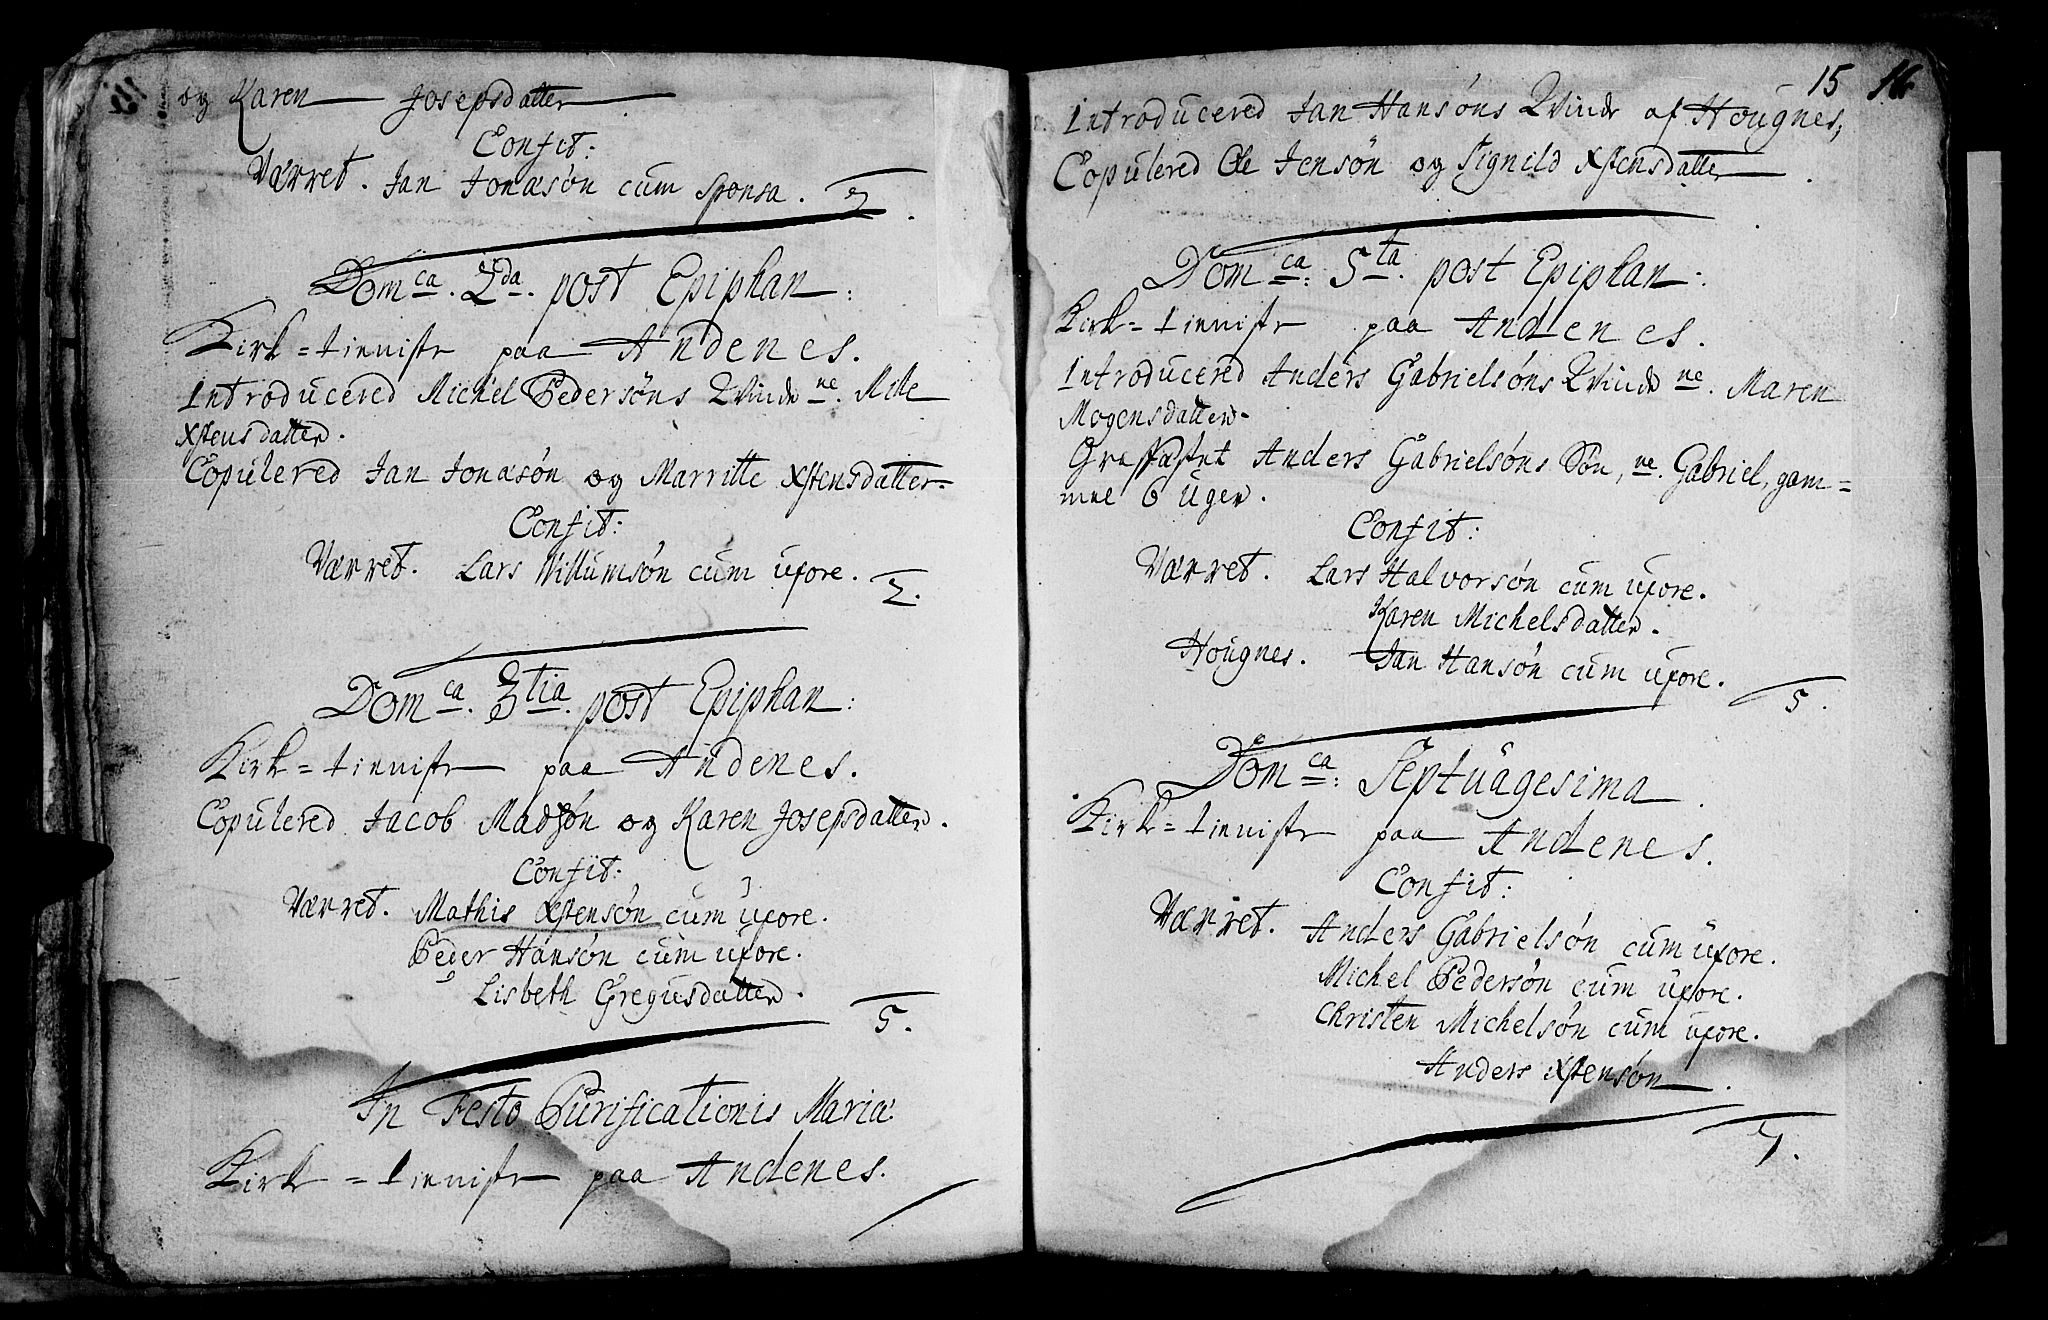 og Karen Josepsdatter
Confit:
Værret. Jan Jonæsøn cum sponsa. 2.
Domca. 2da. post Epiphan:
Kirk=tienniste paa Andenes.
Introducered Michel Pedersøns Qvinde ne. Mille
Xstensdatter.
Copulered Jan Jonæsøn og Marritte Xstensdatter.
Confit:
Værret. Lars Willumsøn cum uxore. 2.
Domca. 3tia. post Epiphan:
Kirk=tienniste paa Andenes.
Copulered Jacob Madsøn og Karen Josepsdatter.
Confit:
Værret. Mathis Xstensøn cum uxore.
Peder Hansøn cum uxore.
Lisbeth Gregusdatter.
5.
In Festo Purificationis Mariæ
Kirk=tienniste paa Andenes.
15 16
Introducered Jan Hansøns Qvinde af Hougnes,
Copulered Ole Jensøn og Signild Xstensdatter.
Domca: 5ta. post Epiphan:
Kirk=tienniste paa Andenes.
Introducered Anders Gabrielsøns Qvinde ne. Maren
Mogensdatter.
Anders Gabrielsøns Søn, ne. Gabriel, gam=
mel 6 Uger.
Confit:
Værret. Lars Halvorsøn cum uxore.
Karen Michelsdatter.
Hougnes. Jan Hansøn cum uxore.
5.
Domca: Septuagesima.
Kirk=tienniste paa Andenes.
Confit:
Værret. Anders Gabrielsøn cum uxore.
Michel Pedersøn cum uxore.
Christen Michelsøn cum uxore.
Anders Xstensøn.
7.